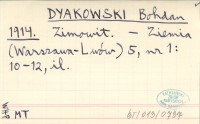 DYAKOWSKI Bohdan
1914. Zimowit. - Ziemia
(Warszawa-Lwów) 5, nr 1:
10-12, il.
MT